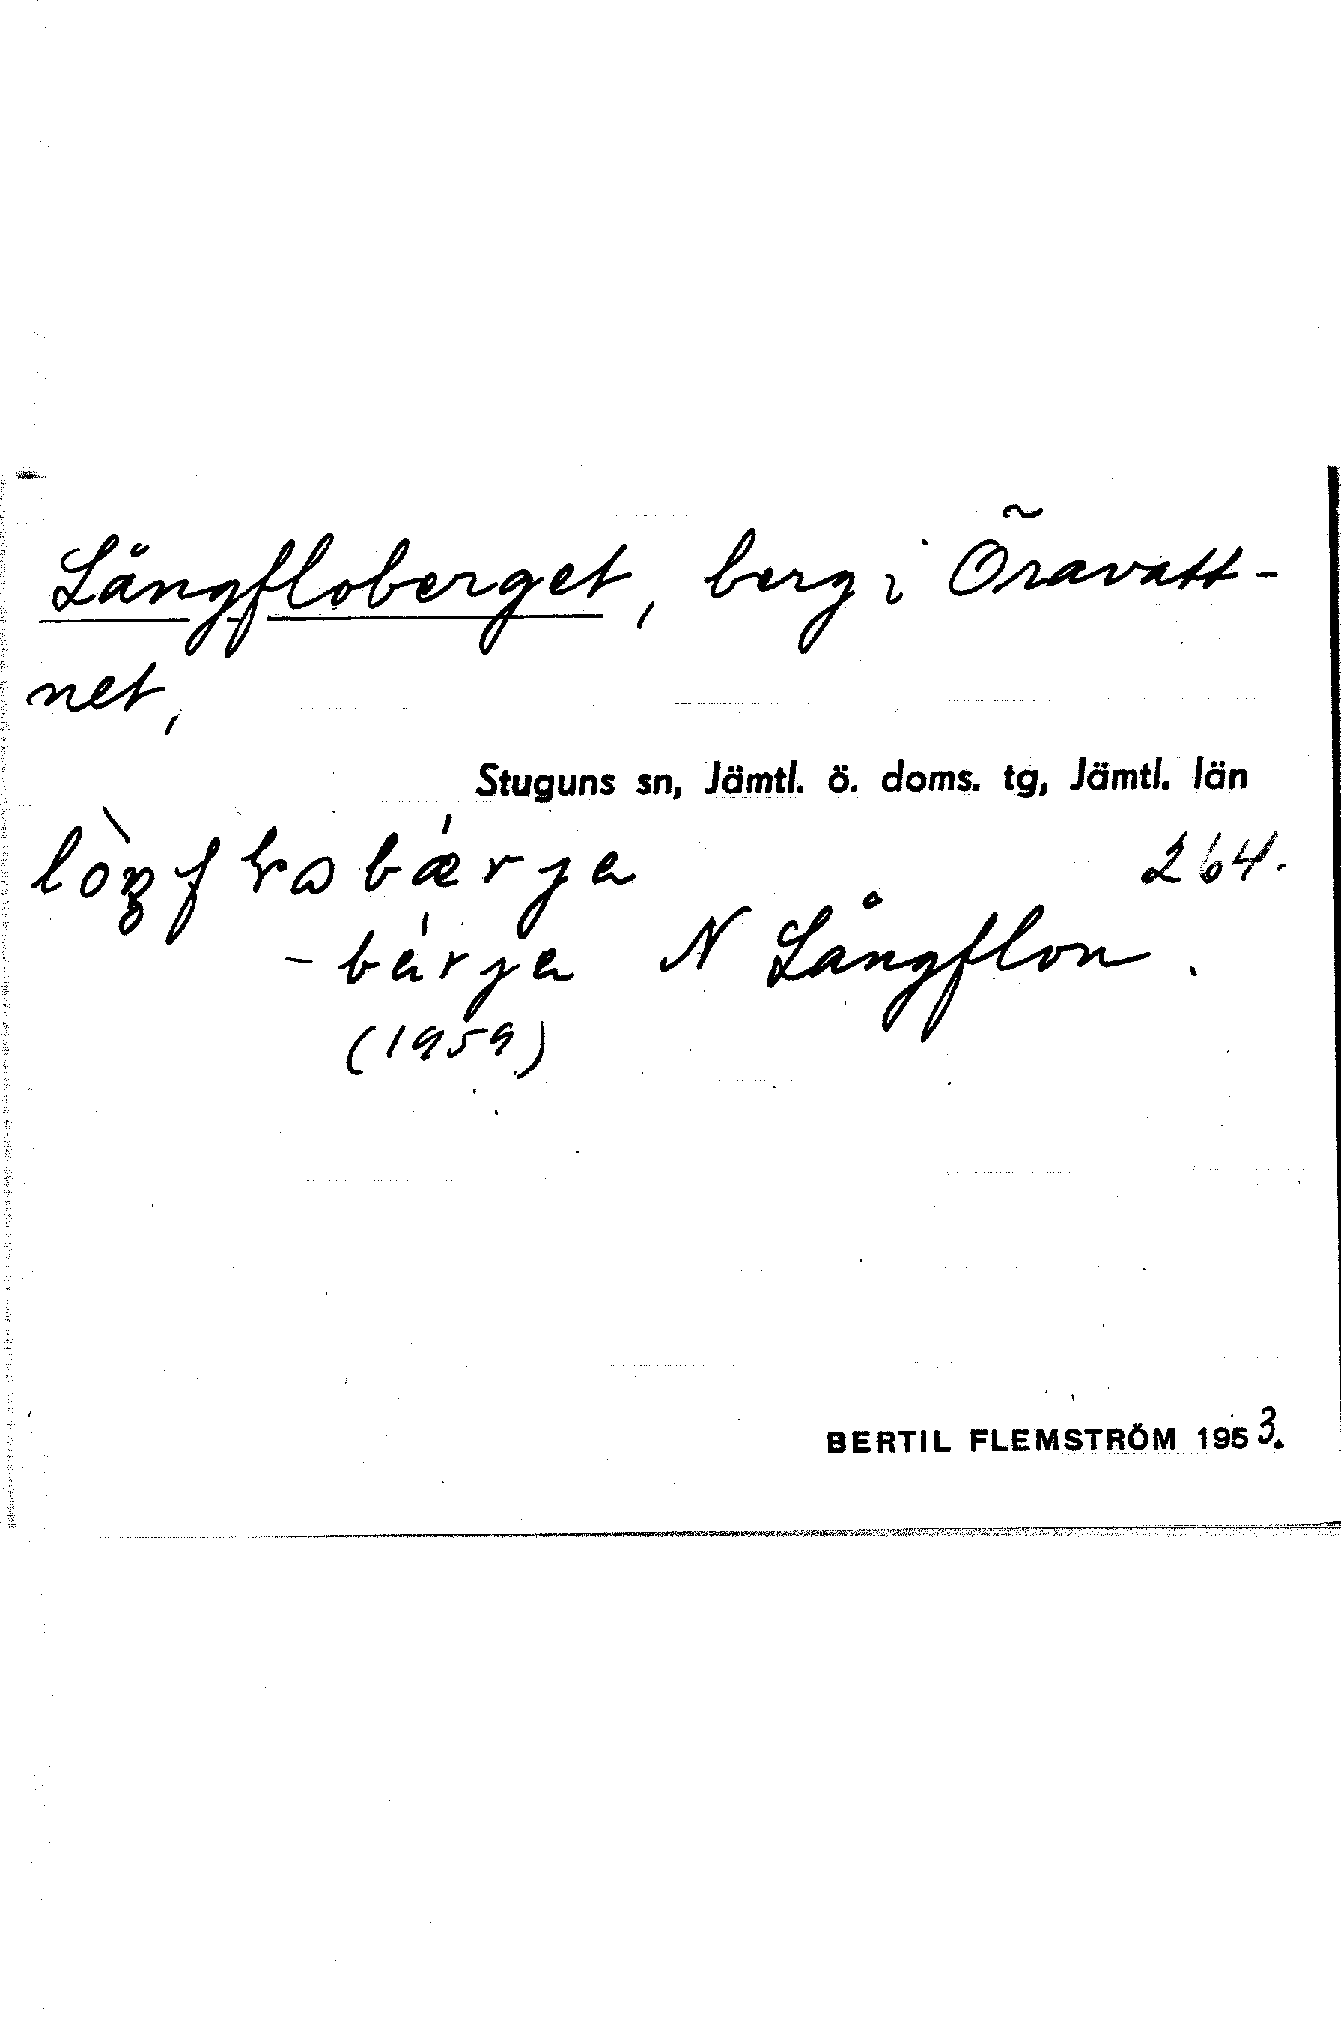 Långfloberget, berg i Öravatt-
net,
Stuguns sn, Jämtl. ö. doms. tg, Jämtl. län
264.
N Långflon.
(1959)
BERTIL FLEMSTRÖM 1953.